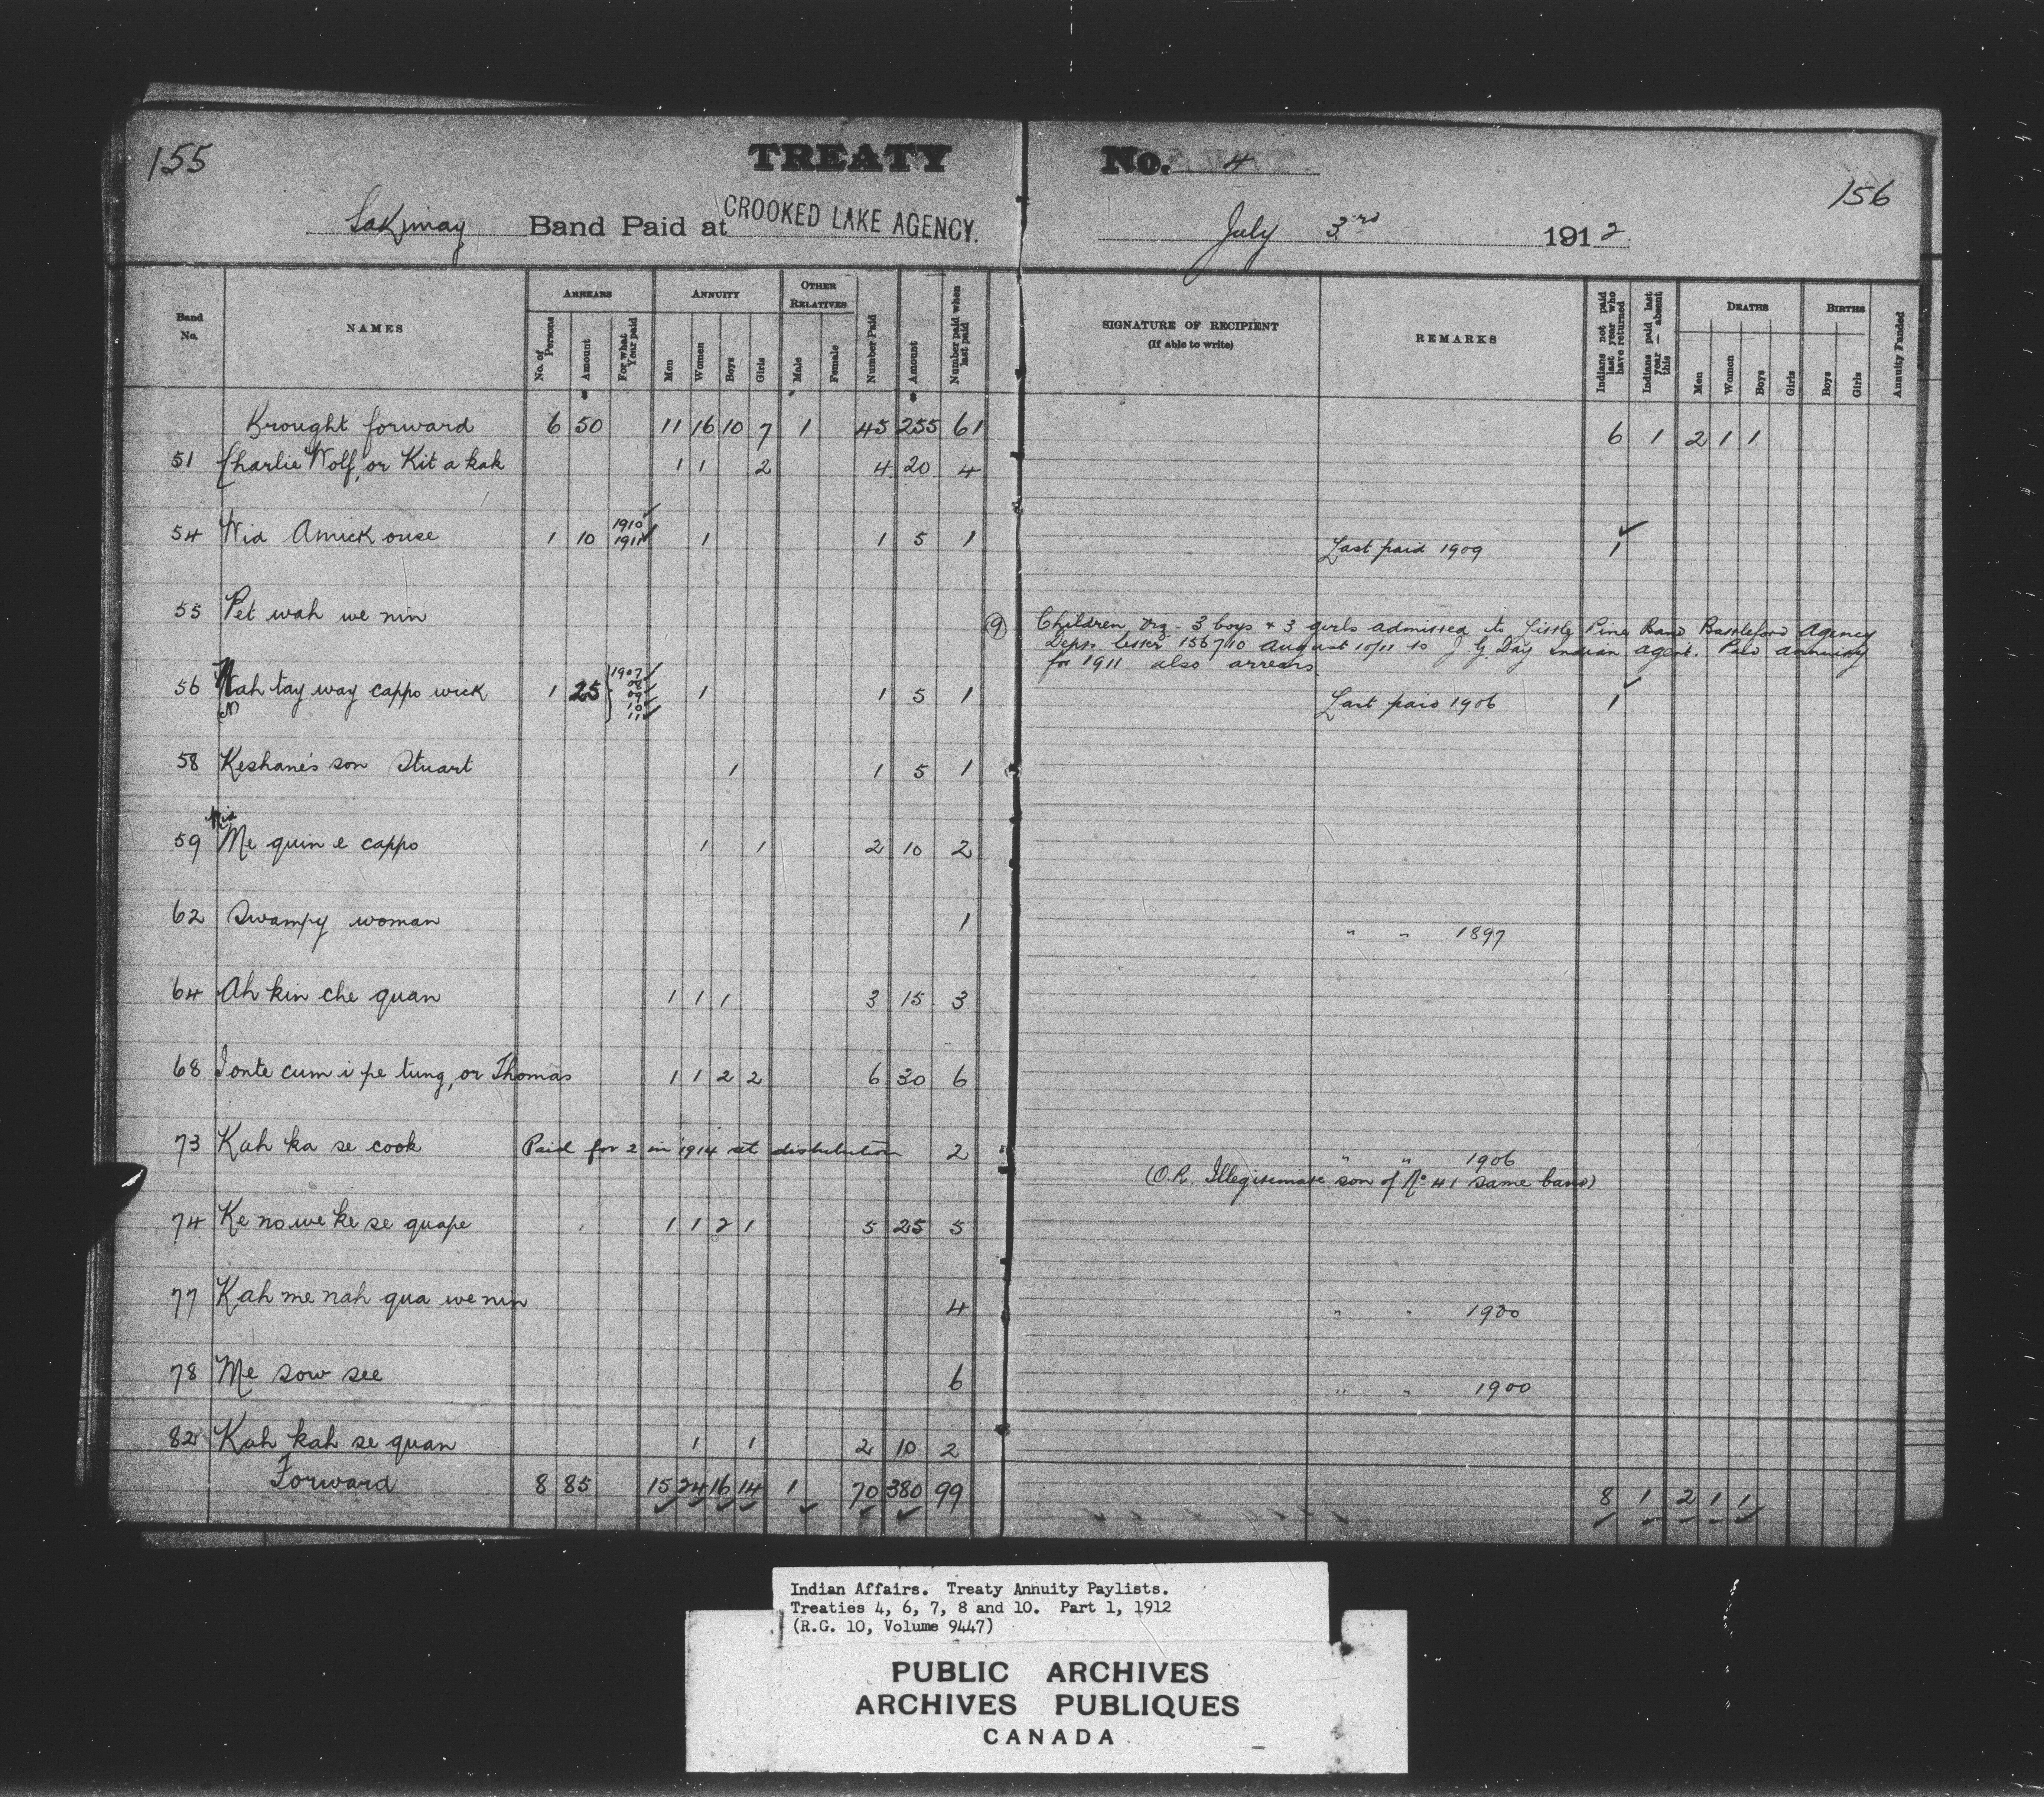 155
TREATY No. 4
156
Sakimay Band Paid at CROOKED LAKE AGENCY. July 3rd 1912
Band No.
NAMES
ARREARS
No. of Persons
Amount
For what Year paid
ANNUITY
Men
Women
Boys
Girls
OTHER RELATIVES
Male
Female
Number Paid
Amount
Number paid when last paid
SIGNATURE OF RECIPIENT
(If able to write)
REMARKS
Indians not paid last year who have returned
Indians paid last year — absent this
DEATHS
Men
Women
Boys
Girls
BIRTHS
Boys
Girls
Annuity Funded
Brought forward 6 50 11 16 10 7 1 45 255 61 6 1 2 1 1
51 Charlie Wolf, or Kit a kak 1 1 2 4 20 4
54 Wid Amick ouse 1 10 1910 1911 1 1 5 1 Last paid 1909 1
55 Pet wah we nin
(9) Children 3 boys & 3 girls admitted to Little Pine Band Battleford Agency
Depts letter 156710 August 10/11 to J. G. Day Indian Agent. Paid annuity
for 1911 also arrears
56 Nah tay way cappo wick 1 25 1907 08 09 10 11 1 1 5 1 Last paid 1906 1
N
58 Keshane's son Stuart 1 1 5 1
59 Wid Me quin e cappo 1 1 2 10 2
62 Swampy woman 1 " " 1897
64 Ah kin che quan 1 1 1 3 15 3
68 Ionte cum i pe tung, or Thomas 1 1 2 2 6 30 6
73 Kah ka se cook Paid for 2 in 1914 at distribution 2 " " 1906
(O.R. Illegitimate son of No 41 same band)
74 Ke no we ke se quape 1 1 2 1 5 25 5
77 Kah me nah qua we nin 4 " " 1900
78 Me sow see 6 " " 1900
82 Kah kah se quan 1 1 2 10 2
Forward 8 85 15 24 16 14 1 70 380 99 8 1 2 1 1
Indian Affairs. Treaty Annuity Paylists.
Treaties 4, 6, 7, 8 and 10. Part 1, 1912
(R.G. 10, Volume 9447)
PUBLIC ARCHIVES
ARCHIVES PUBLIQUES
CANADA